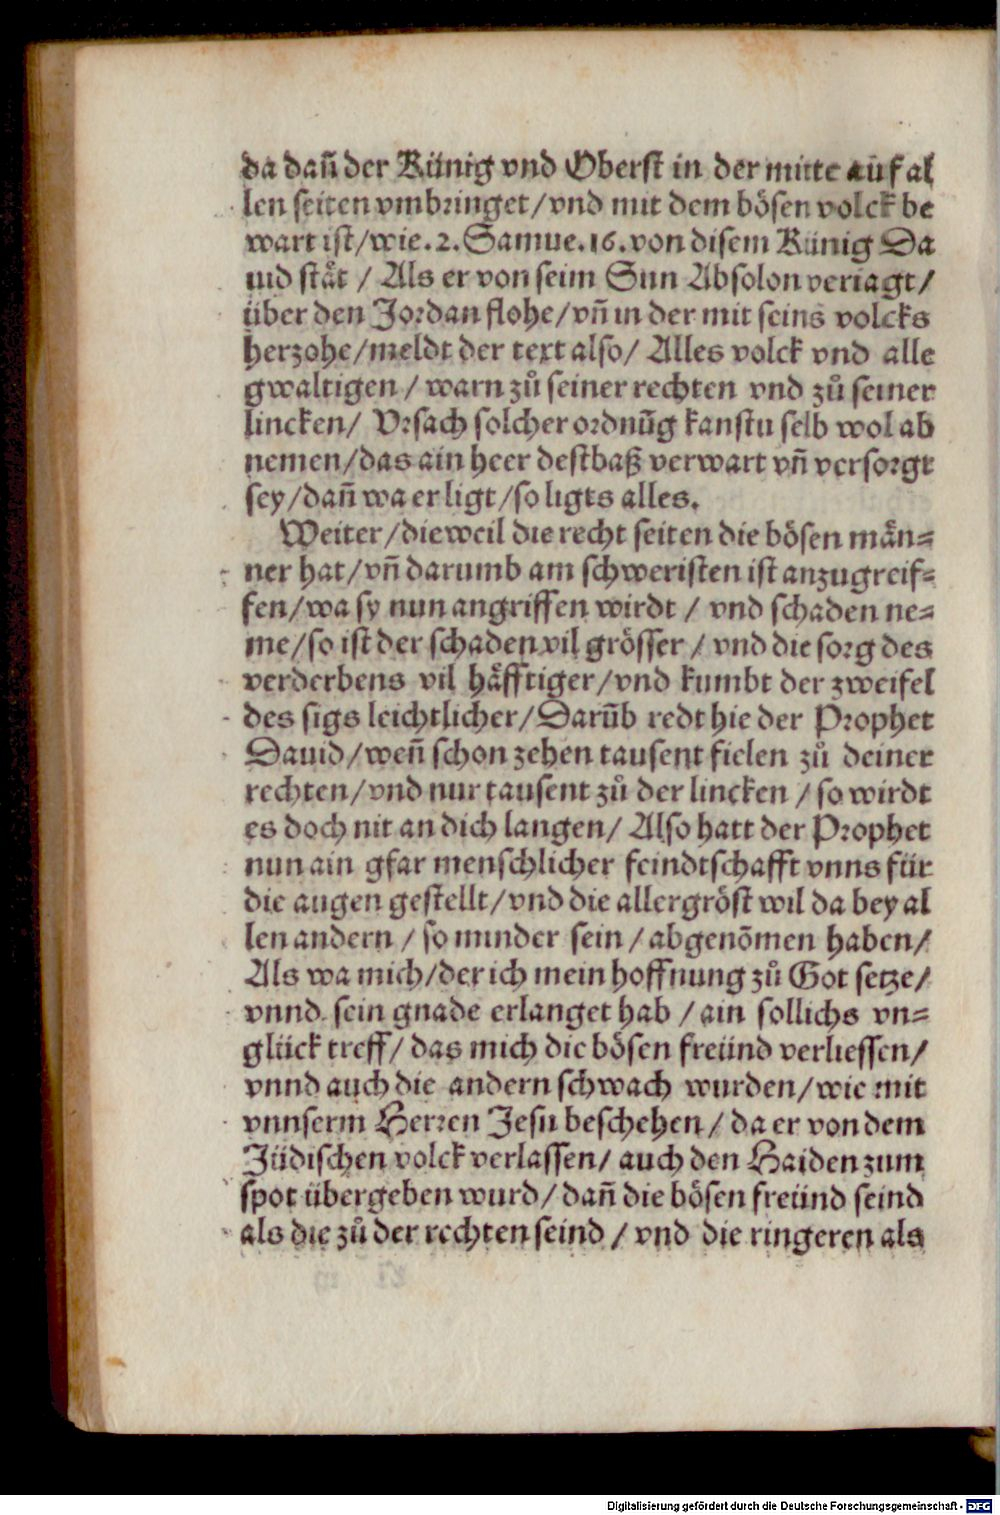 da dañ der Künig vnd Oberst in der mitte auf al
len seiten vmbringet/vnd mit dem bösen volck be
wart ist/wie.2.Samue.16.von disem Künig Da
uid stät / Als er von seim Sun Absolon veriagt/
über den Jordan flohe/vñ in der mit seins volcks
herzohe/meldt der text also/ Alles volck vnd alle
gwaltigen / warn zů seiner rechten vnd zů seiner
lincken/ Vrsach solcher ordnũg kanstu selb wol ab
nemen/das ain heer destbaß verwart vñ versorgt
sey/dañ wa er ligt/so ligts alles.
Weiter/dieweil die recht seiten die bösen män⸗
ner hat/vñ darumb am schweristen ist anzugreif⸗
fen/wa sy nun angriffen wirdt / vnd schaden ne⸗
me/so ist der schaden vil grösser / vnd die sorg des
verderbens vil häfftiger/vnd kumbt der zweifel
des sigs leichtlicher/Darũb redt hie der Prophet
Dauid/weñ schon zehen tausent fielen zů deiner
rechten/vnd nur tausent zů der lincken / so wirdt
es doch nit an dich langen/ Also hatt der Prophet
nun ain gfar menschlicher feindtschafft vnns für
die augen gestellt/vnd die allergröst wil da bey al
len andern / so minder sein / abgenõmen haben/
Als wa mich/der ich mein hoffnung zů Got setze/
vnnd sein gnade erlanget hab / ain sollichs vn⸗
glück treff/ das mich die bösen freünd verliessen/
vnnd auch die andern schwach wurden/wie mit
vnnserm Herren Jesu beschehen / da er von dem
Jüdischen volck verlassen/ auch den Haiden zum
spot übergeben wurd/dañ die bösen freünd seind
als die zů der rechten seind / vnd die ringeren als
Digitalisierung gefördert durch die Deutsche Forschungsgemeinschaft - DFG